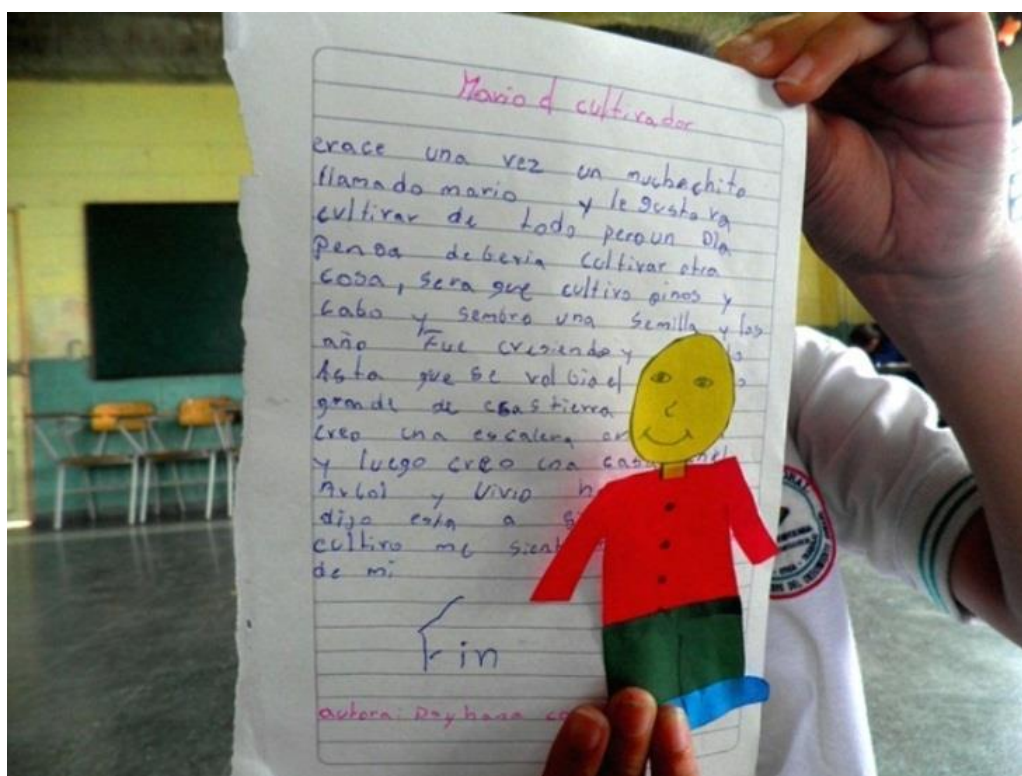 Mario el cultivador
erace una vez un muchachito
llamado mario y le gustava
cultivar de todo pero un Dia
pensa deberia cultivar otra
cosa, sera que cultivo pinos y
cabo y sembro una semilla y los
año Fue cresiendo y
Asta que se volbio el
grande de esas tierra
creo una escalera
y luego creo una casa enel
Arbol y vivio
dijo esta a
cultivo me
de mi
Fin
autora: Dayhana